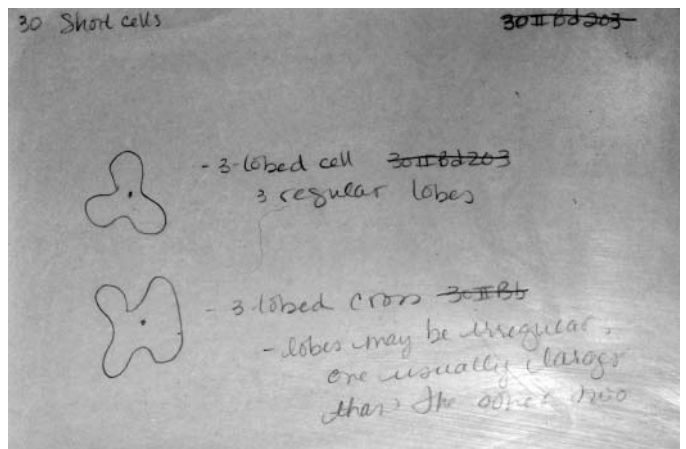 30 Short cells
30 II Bd 203
- 3-lobed cell 30 II Bd 203
3 regular lobes
- 3-lobed cross 30 II Bb
- lobes may be irregular,
one usually larger
than the other two